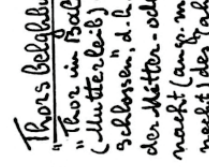 Thors Belehnu
"Thor im Bal
(Mutterleib)
schlossen", d.h.
der Mitter-od
nacht (ang. m
necht) des Jah